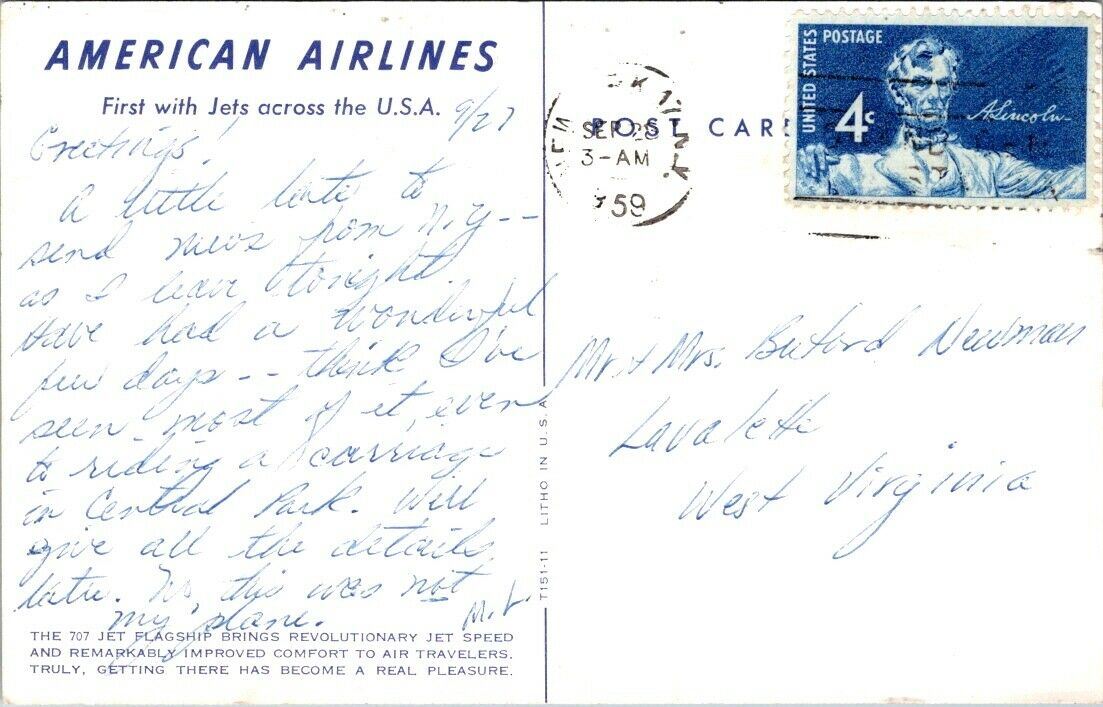 AMERICAN AIRLINES
First with Jets across the U.S.A.
9/27
Greetings!
A little late to
send news from N.Y --
as I leave tonight.
Have had a wonderful
few days -- think I've
seen most of it, even
to riding a carriage
in Central Park. Will
give all the details
later. No this was not
my plane. M.L.
THE 707 JET FLAGSHIP BRINGS REVOLUTIONARY JET SPEED
AND REMARKABLY IMPROVED COMFORT TO AIR TRAVELERS.
TRULY, GETTING THERE HAS BECOME A REAL PLEASURE.
T151-11 LITHO IN U.S.A.
POST CARD
NEW YORK, N.Y.
SEP 28
3-AM
1959
UNITED STATES POSTAGE
4c
A. Lincoln
Mr. & Mrs. Buford Newman
Lavalette
West Virginia